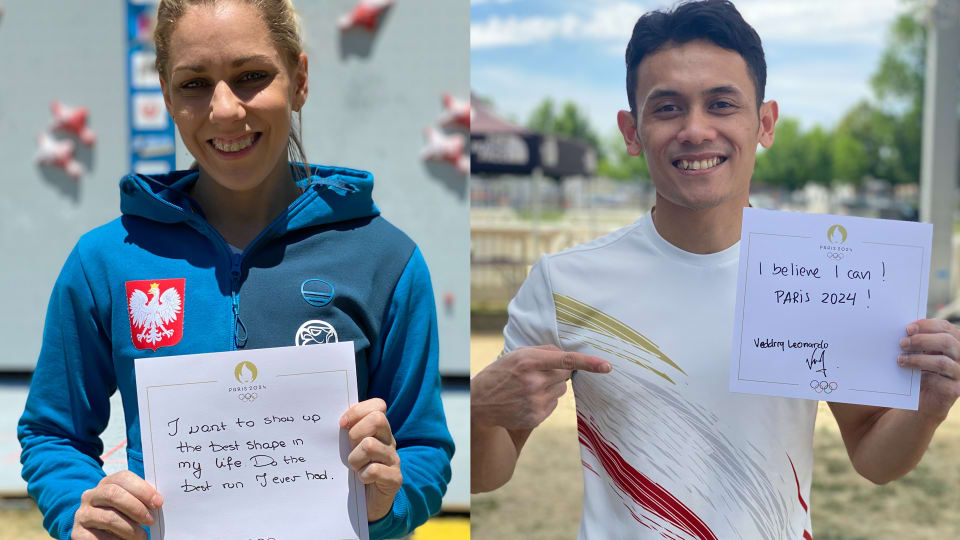 PARIS 2024
I want to show up
the best shape in
my life Do the
best run I ever had.
PARIS 2024
I believe I can!
PARIS 2024!
Veddriq Leonardo